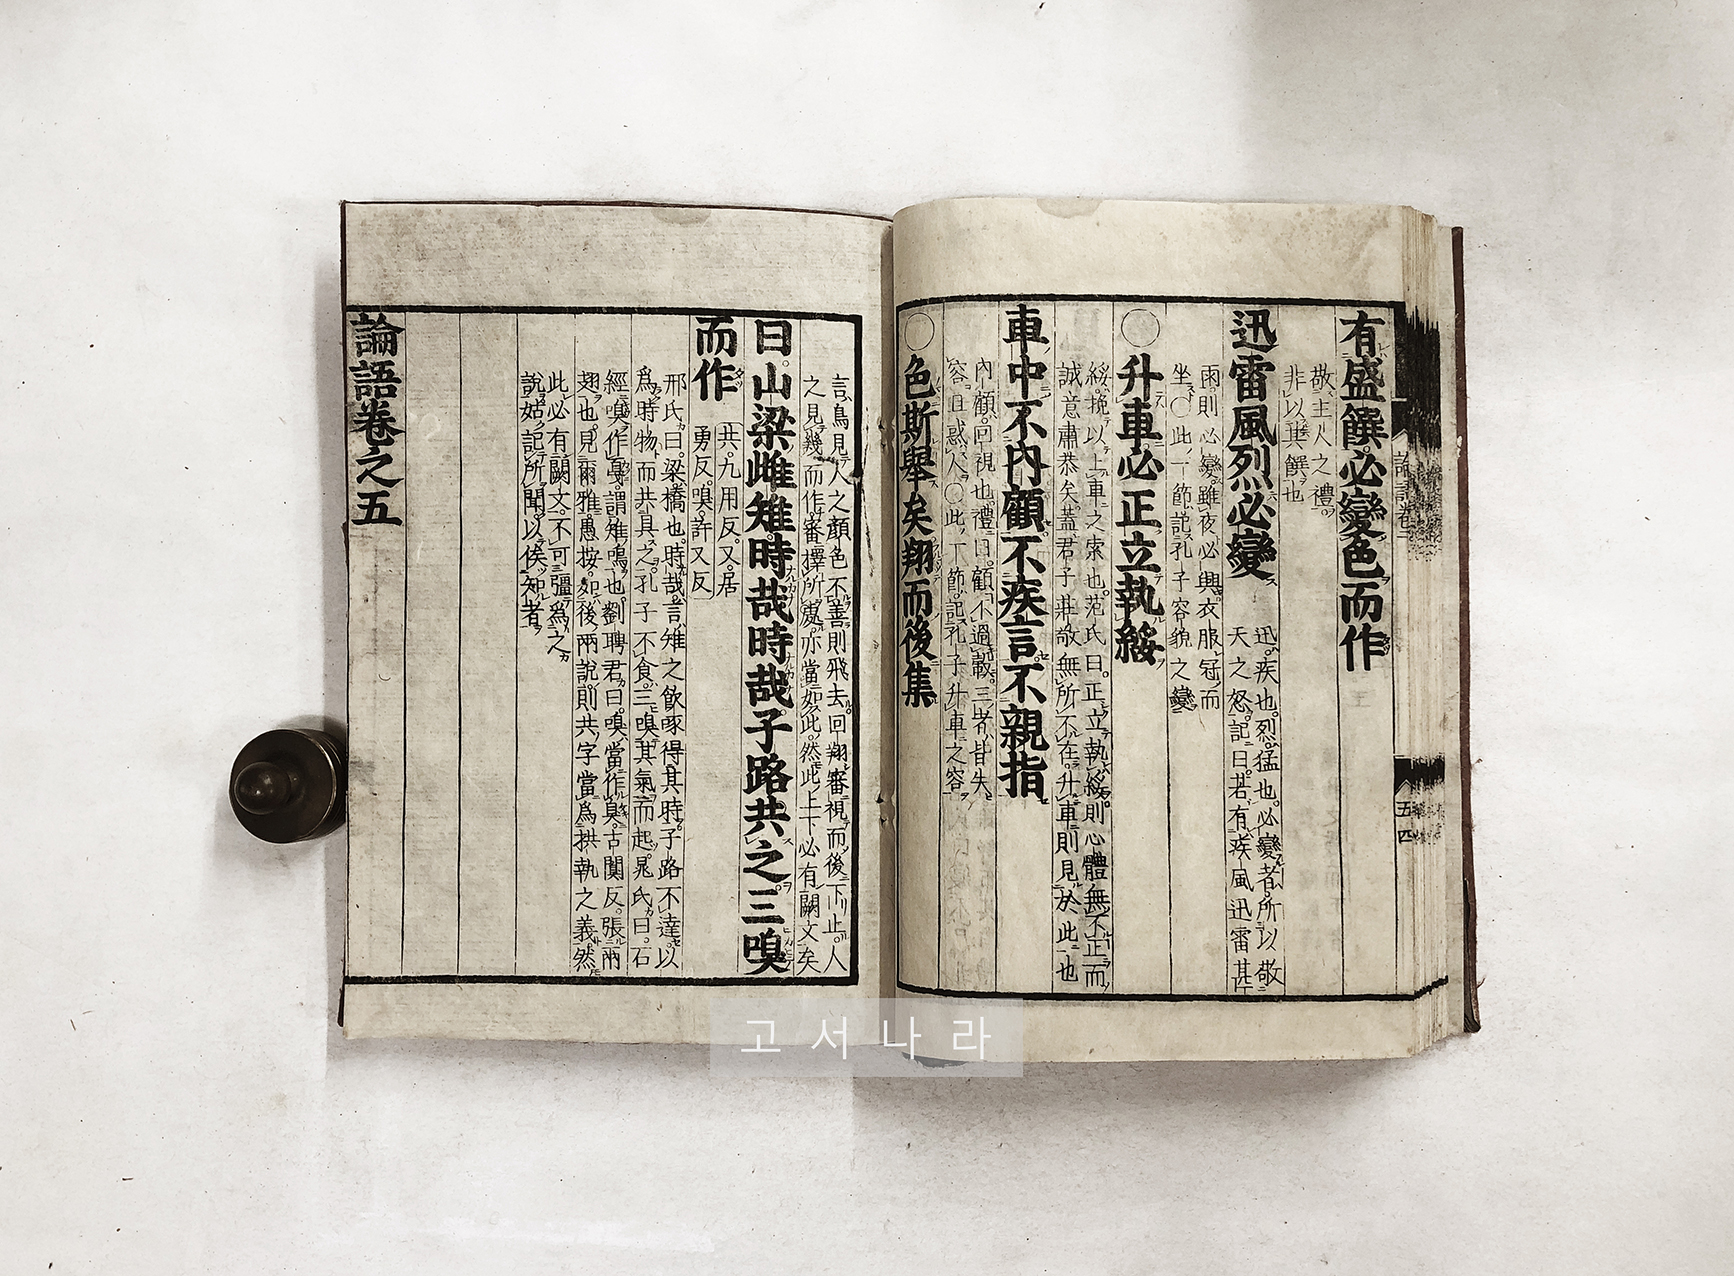 有盛饌必變色而作
敬主人之禮
非以其饌也
迅雷風烈必變
迅疾也烈猛也必變者所以敬
天之怒記曰若有疾風迅雷甚
雨則必變雖夜必興衣服冠而
坐○此一節記孔子容貌之變
○升車必正立執綏
綏挽以上車之索也范氏曰正立執綏則心體無不正而
誠意肅恭矣蓋君子莊敬無所不在升車則見於此也
車中不內顧不疾言不親指
內顧回視也禮曰顧不過轂三者皆失
容且惑人○此一節記孔子升車之容
○色斯舉矣翔而後集
言鳥見人之顏色不善則飛去回翔審視而後下止人
之見幾而作審擇所處亦當如此然此上下必有闕文矣
曰山梁雌雉時哉時哉子路共之三嗅
而作
共九用反又居
勇反嗅許又反
邢氏曰梁橋也時哉言雉之飲啄得其時子路不達以
爲時物而共具之孔子不食三嗅其氣而起晁氏曰石
經嗅作戛謂雉鳴也劉聘君曰嗅當作臭古闃反張兩
翅也見爾雅愚按如後兩說則共字當爲拱執之義然
此必有闕文不可彊爲之
說姑記所聞以俟知者
論語卷之五
論語卷
五 四
고서나라